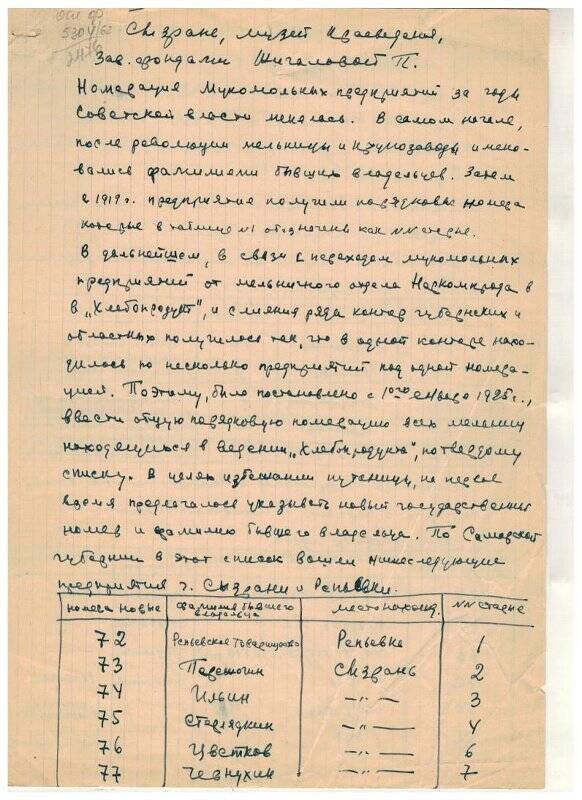 Осн ф
5304/62
Сызрань, музей Краеведения,
Зав. фондами Шигаловой П.
Номерация Мукомольных предприятий за годы
Советской власти менялась. В самом начале,
после революции мельницы и крупозаводы имено-
вались фамилиями бывших владельцев. Затем
с 1919 г. предприятие получили порядковые номера
которые в таблице №1 обозначены как NN старые.
В дальнейшем, в связи с переходом мукомольных
предприятий от мельничного отдела Наркомпрода в
в „Хлебопродукт", и слияния ряда контор губернских и
областных получилось так, что в одной конторе нахо-
дилось по несколько предприятий под одной номера-
цией. Поэтому, было постановлено с 1го января 1925 г.,
ввести общую порядковую номерацию всем мельницам
находящимся в ведении „Хлебопродукта", по твердому
списку. В целях избежании путаницы, на первое
время предлогалось указывать новый государственный
номер и фамилию бывшего владельца. По Самарской
губернии в этот список вошли нижеследующие
предприятия г. Сызрани и Репьевки.
номера новые фамилия бывшего владельца место наход. NN старые
72 Репьевское товарищество Репьевка 1
73 Пережогин Сызрань 2
74 Ильин —„— 3
75 Стерлядкин —„— 4
76 Цветков —„— 6
77 Чернухин —„— 7